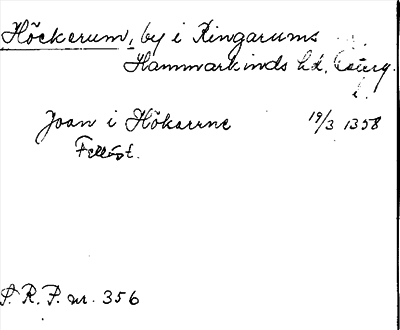 Höckerum, by i Ringarums
Hammarkinds hd, Österg.
l.
Joan i Hökarrne 19/3 1358
S. R. P. nr. 356